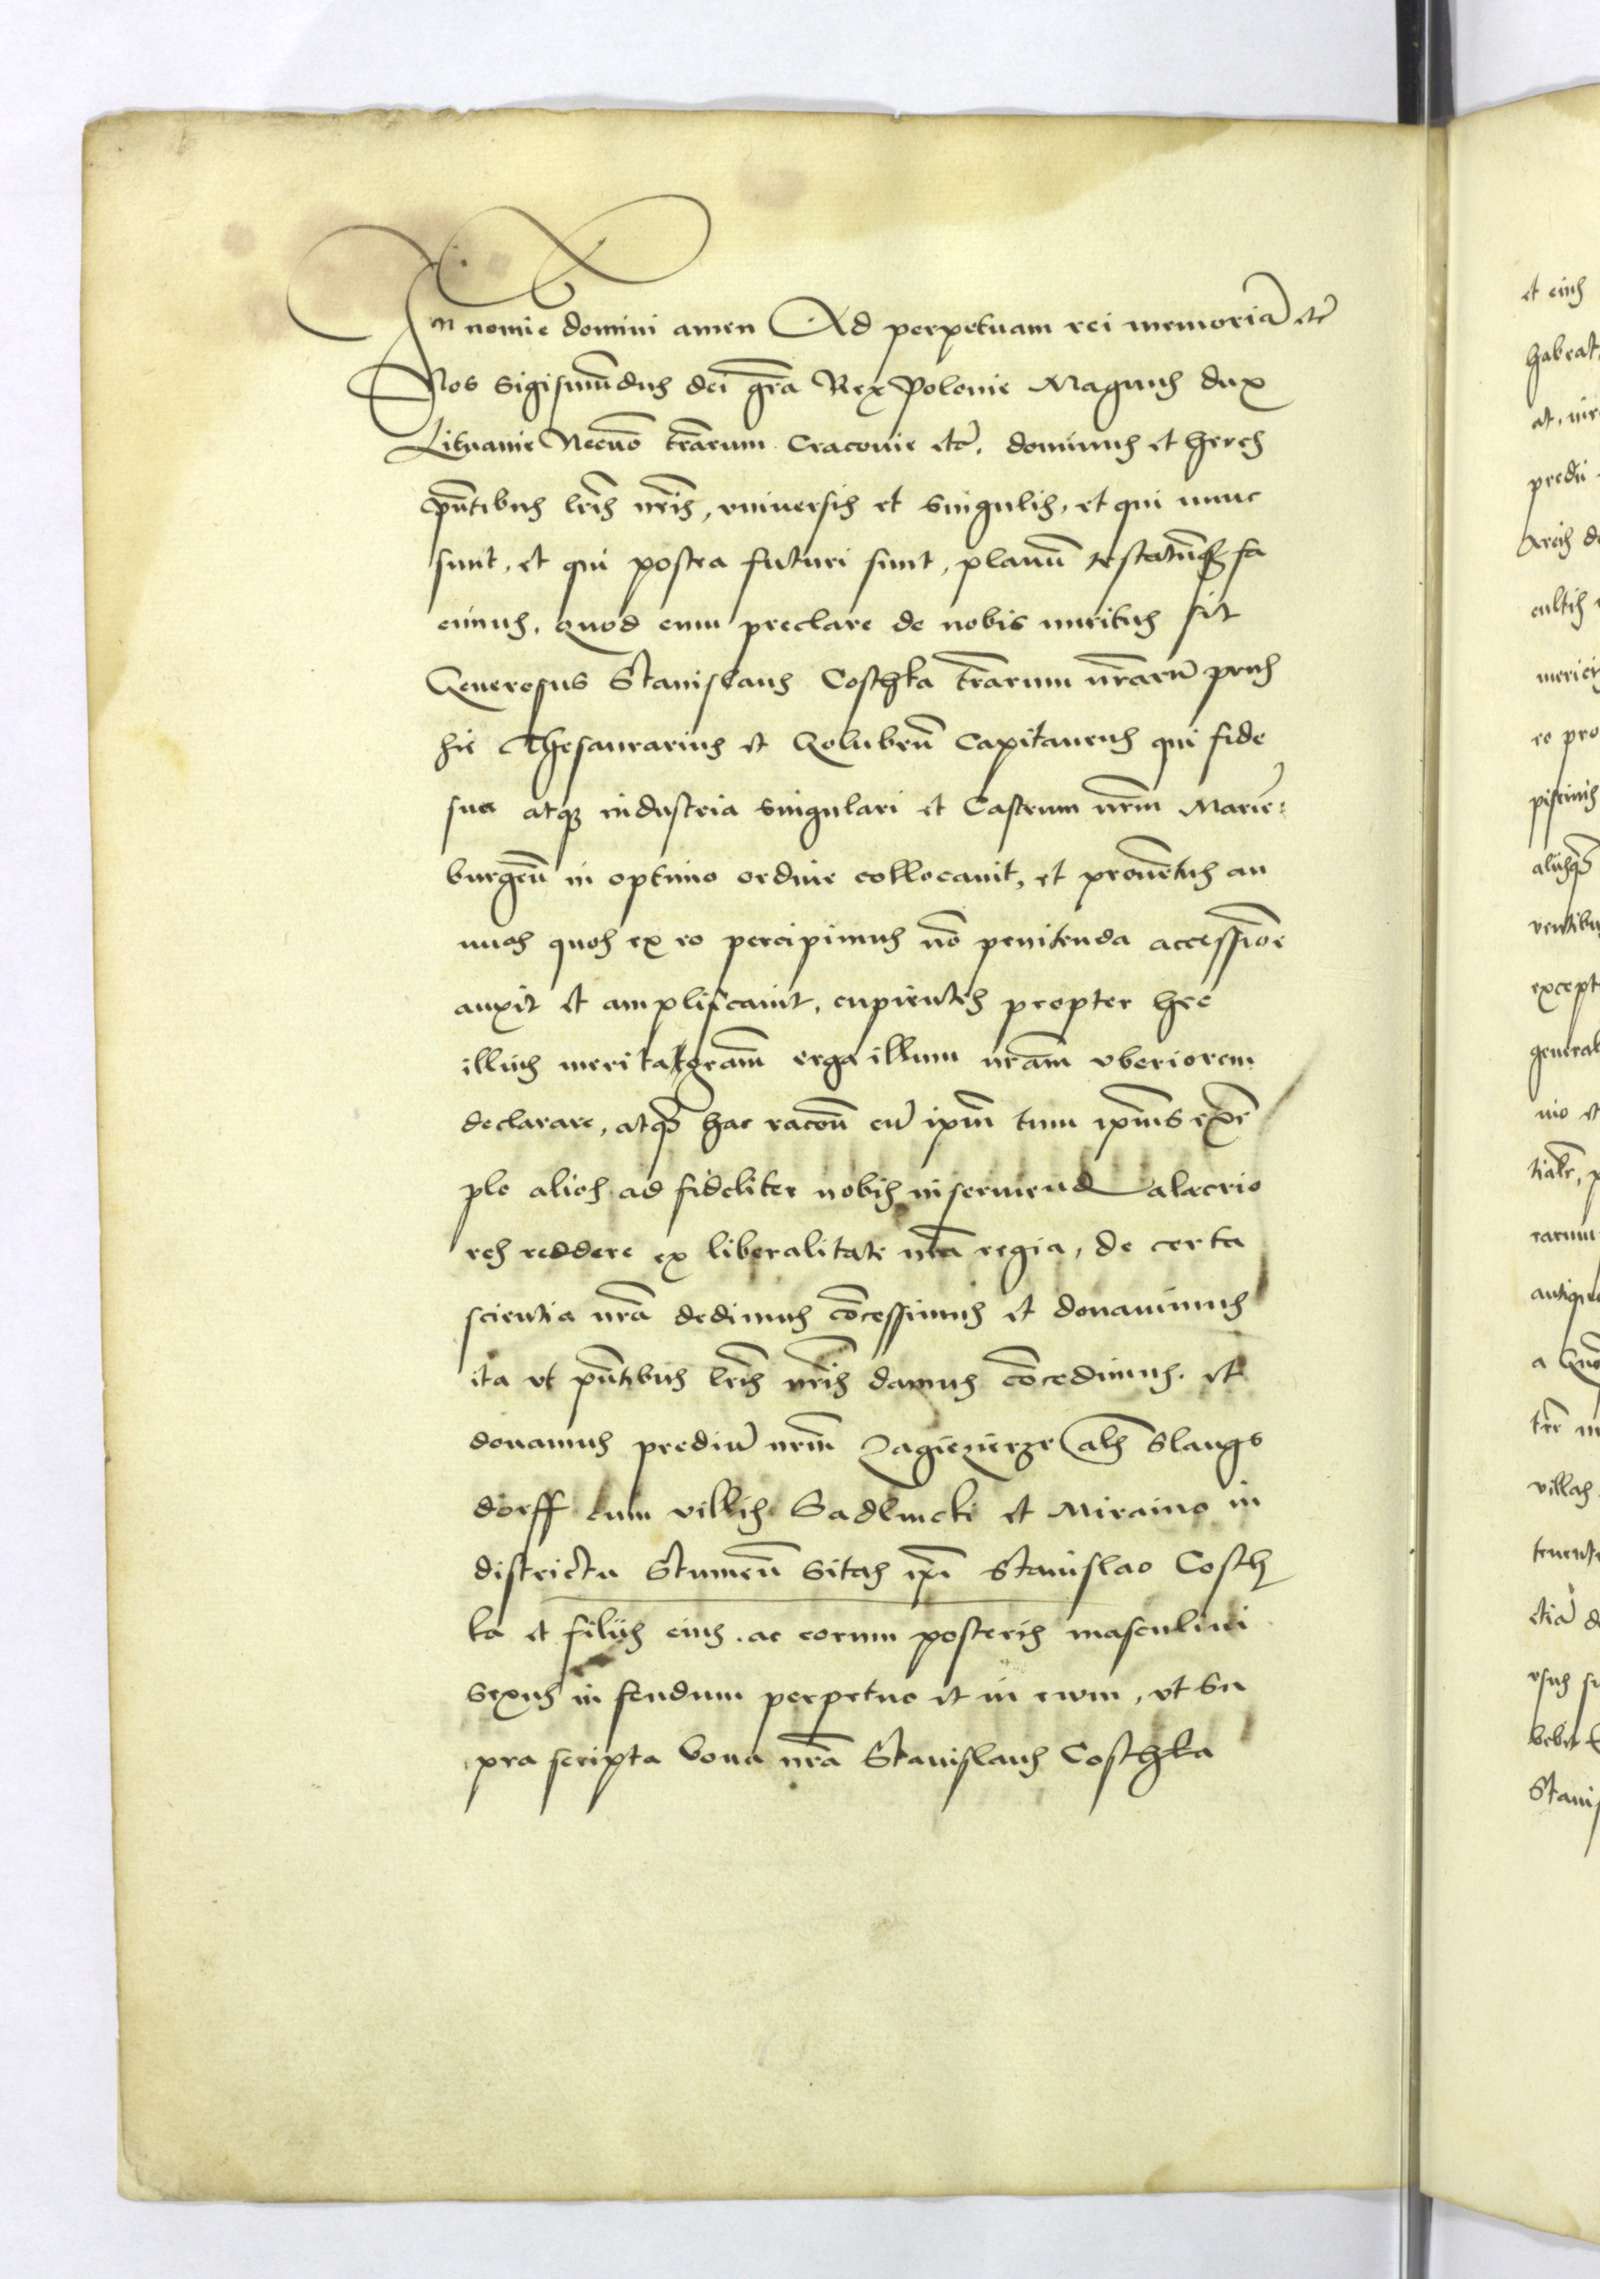 In nomie domini amen Ad perpetuam rei memoriā etc̄
Nos Sigismūdus dei gr̄a Rex Polonie Magnus dux
Lituanie Necnō tr̄arum Cracovie etc̄. dominus et heres
pn̄tibus lr̄is nr̄is, vniversis et singulis, et qui nunc
sunt, et qui postea futuri sunt, planū testatūq̢ fa
cimus, quod cum preclare de nobis meritus sit
Generosus Stanislaus Coschka tr̄arum nr̄arū prus
sie Thesaurarius et Golubeñ Capitaneus qui fide
sua atq̢ industria singulari et Castrum nr̄m Marie:
burgeñ in optimo ordine collocavit, et provētus an
nuos quos ex eo percipimus nō penitenda accessiōe
auxit et amplificavit, cupientes propter hec
illius merita gr̄am erga illum nr̄am vberiorem
declarare, atq̢ hac racoñ cū ip̄m tum ip̄ius exē
plo alios ad fideliter nobis inserviend alacrio
res reddere ex liberalitate nr̄a regia, de certa
scientia nr̄a dedimus cōcessimus et donavimus
ita vt pn̄tibus lr̄is nr̄is damus cōcedimus et
donamus prediū nr̄m Zagiezierze als Slangs
dorff cum villis Sadlucki et Miraino in
districtu Stumeñ sitas ip̄i Stanislao Cosch
ka et filiis eius ac eorum posteris masculini
sexus in feudum perpetuo et in evum, vt su
pra scripta bona nr̄a Stanislaus Coschka
et eius
habeat
predii
cultis
eo pro
piscinis
except
general
tiabr̄,
rarum
antiqu
villas
tenent
etiā d
Stanis